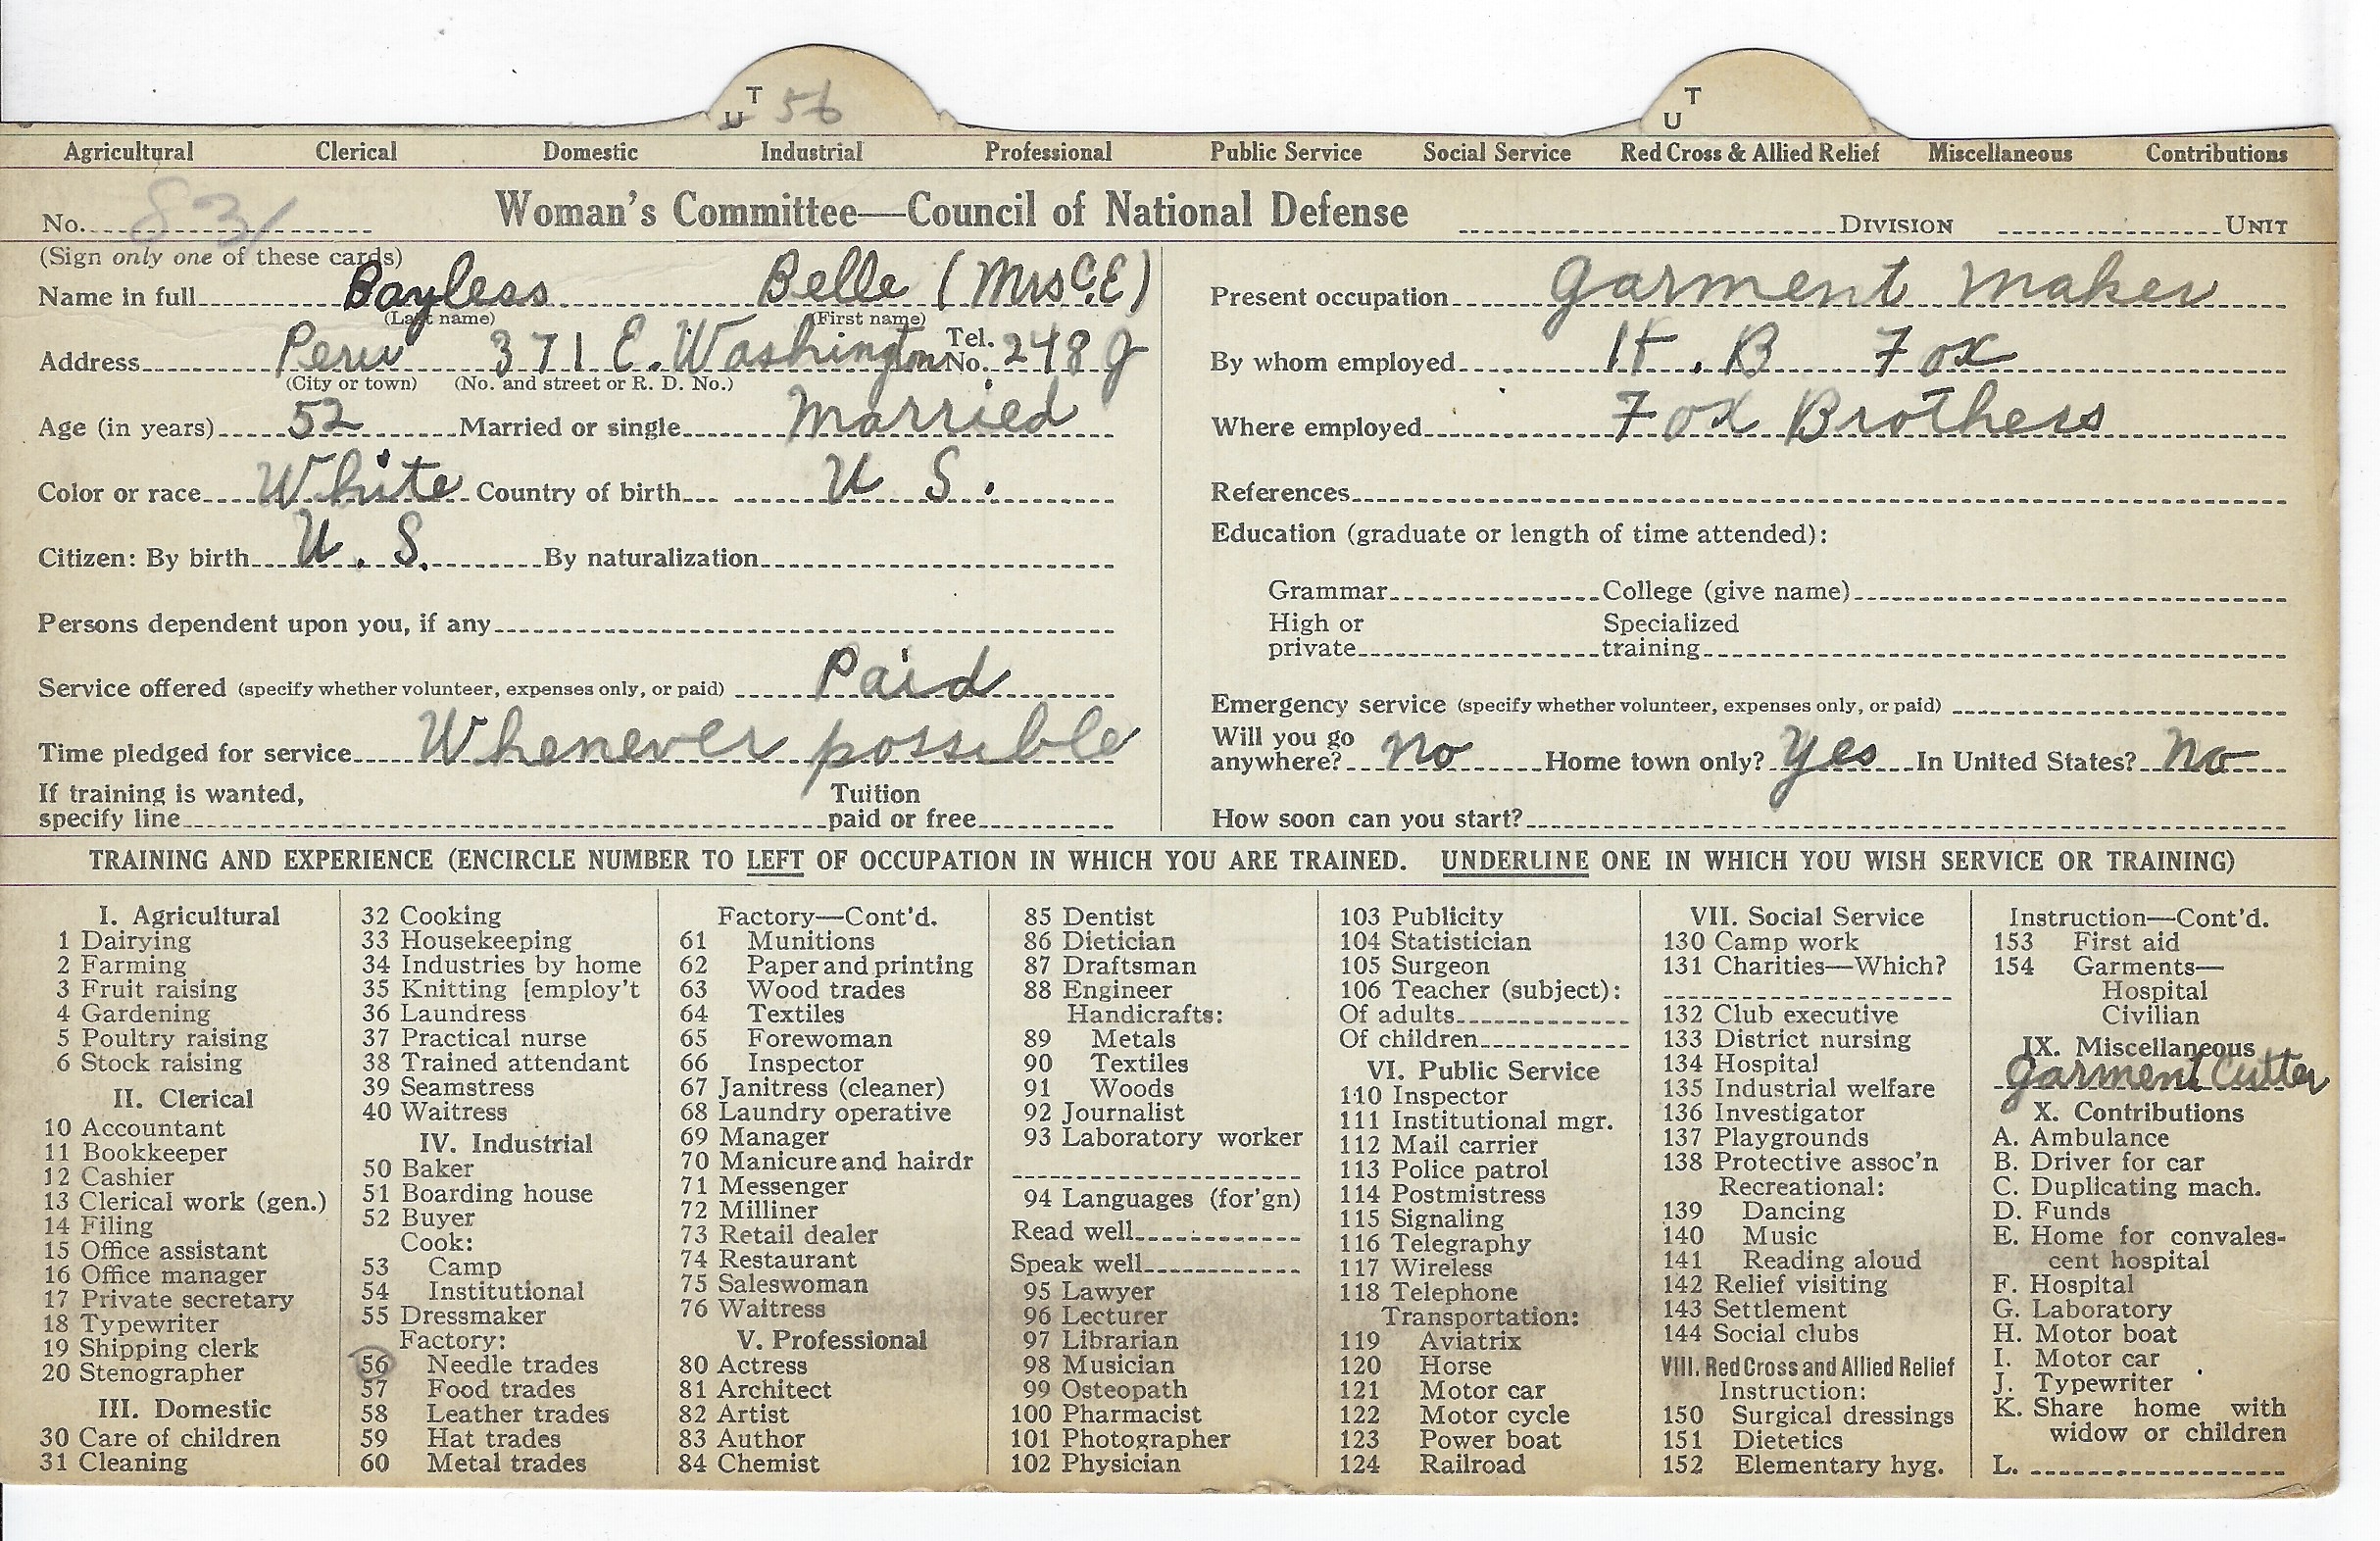 T
U 56
T
U
Agricultural Clerical Domestic Industrial Professional Public Service Social Service Red Cross & Allied Relief Miscellaneous Contributions
No. 831 Woman's Committee—Council of National Defense DIVISION UNIT
(Sign only one of these cards)
Name in full Bayless Belle (Mrs C.E)
(Last name) (First name)
Address Peru 371 E. Washington Tel. No. 248 J
(City or town) (No. and street or R. D. No.)
Age (in years) 52 Married or single married
Color or race White Country of birth U S.
Citizen: By birth U. S. By naturalization
Persons dependent upon you, if any
Service offered (specify whether volunteer, expenses only, or paid) Paid
Time pledged for service Whenever possible
If training is wanted, specify line Tuition paid or free
Present occupation garment maker
By whom employed H. B Fox
Where employed Fox Brothers
References
Education (graduate or length of time attended):
Grammar College (give name)
High or private Specialized training
Emergency service (specify whether volunteer, expenses only, or paid)
Will you go anywhere? no Home town only? yes In United States? no
How soon can you start?
TRAINING AND EXPERIENCE (ENCIRCLE NUMBER TO LEFT OF OCCUPATION IN WHICH YOU ARE TRAINED. UNDERLINE ONE IN WHICH YOU WISH SERVICE OR TRAINING)
I. Agricultural
1 Dairying
2 Farming
3 Fruit raising
4 Gardening
5 Poultry raising
6 Stock raising
II. Clerical
10 Accountant
11 Bookkeeper
12 Cashier
13 Clerical work (gen.)
14 Filing
15 Office assistant
16 Office manager
17 Private secretary
18 Typewriter
19 Shipping clerk
20 Stenographer
III. Domestic
30 Care of children
31 Cleaning
32 Cooking
33 Housekeeping
34 Industries by home
35 Knitting [employ't
36 Laundress
37 Practical nurse
38 Trained attendant
39 Seamstress
40 Waitress
IV. Industrial
50 Baker
51 Boarding house
52 Buyer
Cook:
53 Camp
54 Institutional
55 Dressmaker
Factory:
56 Needle trades
57 Food trades
58 Leather trades
59 Hat trades
60 Metal trades
Factory—Cont'd.
61 Munitions
62 Paper and printing
63 Wood trades
64 Textiles
65 Forewoman
66 Inspector
67 Janitress (cleaner)
68 Laundry operative
69 Manager
70 Manicure and hairdr
71 Messenger
72 Milliner
73 Retail dealer
74 Restaurant
75 Saleswoman
76 Waitress
V. Professional
80 Actress
81 Architect
82 Artist
83 Author
84 Chemist
85 Dentist
86 Dietician
87 Draftsman
88 Engineer
Handicrafts:
89 Metals
90 Textiles
91 Woods
92 Journalist
93 Laboratory worker
94 Languages (for'gn)
Read well
Speak well
95 Lawyer
96 Lecturer
97 Librarian
98 Musician
99 Osteopath
100 Pharmacist
101 Photographer
102 Physician
103 Publicity
104 Statistician
105 Surgeon
106 Teacher (subject):
Of adults
Of children
VI. Public Service
110 Inspector
111 Institutional mgr.
112 Mail carrier
113 Police patrol
114 Postmistress
115 Signaling
116 Telegraphy
117 Wireless
118 Telephone
Transportation:
119 Aviatrix
120 Horse
121 Motor car
122 Motor cycle
123 Power boat
124 Railroad
VII. Social Service
130 Camp work
131 Charities—Which?
132 Club executive
133 District nursing
134 Hospital
135 Industrial welfare
136 Investigator
137 Playgrounds
138 Protective assoc'n
Recreational:
139 Dancing
140 Music
141 Reading aloud
142 Relief visiting
143 Settlement
144 Social clubs
VIII. Red Cross and Allied Relief
Instruction:
150 Surgical dressings
151 Dietetics
152 Elementary hyg.
Instruction—Cont'd.
153 First aid
154 Garments—
Hospital
Civilian
IX. Miscellaneous
garment Cutter
X. Contributions
A. Ambulance
B. Driver for car
C. Duplicating mach.
D. Funds
E. Home for convales-
cent hospital
F. Hospital
G. Laboratory
H. Motor boat
I. Motor car
J. Typewriter
K. Share home with
widow or children
L.